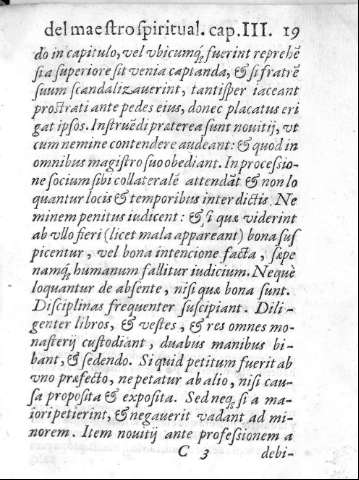 del maeſtro ſpiritual. cap. III. 19
do in capitulo, vel vbicumq́; fuerint reprehẽ
ſi a ſuperiore ſit venia captanda, & ſi fratrẽ
ſuum ſcandalizauerint, tantiſper iaceant
proſtrati ante pedes eius, donec placatus eri
gat ipſos. Inſtruẽdi præterea ſunt nouitij, vt
cum nemine contendere audeant: & quod in
omnibus magiſtro ſuo obediant. In proceſſio-
ne ſocium ſibi collateralẽ attendãt & non lo
quantur locis & temporibus interdictis. Ne
minem penitus iudicent: & ſi quæ viderint
ab vllo fieri (licet mala appareant) bona ſuſ
picentur, vel bona intencione facta, ſæpe
namq́; humanum fallitur iudicium. Neque
loquantur de abſente, niſi quæ bona ſunt.
Diſciplinas frequenter ſuſcipiant. Dili-
genter libros, & veſtes, & res omnes mo-
naſterij cuſtodiant, duabus manibus bi-
bant, & ſedendo. Si quid petitum fuerit ab
vno præfecto, ne petatur ab alio, niſi cau-
ſa propoſita & expoſita. Sed neq́; ſi a ma-
iori petierint, & negauerit vadant ad mi-
norem. Item nouitij ante profeſsionem a
C 3 debi-